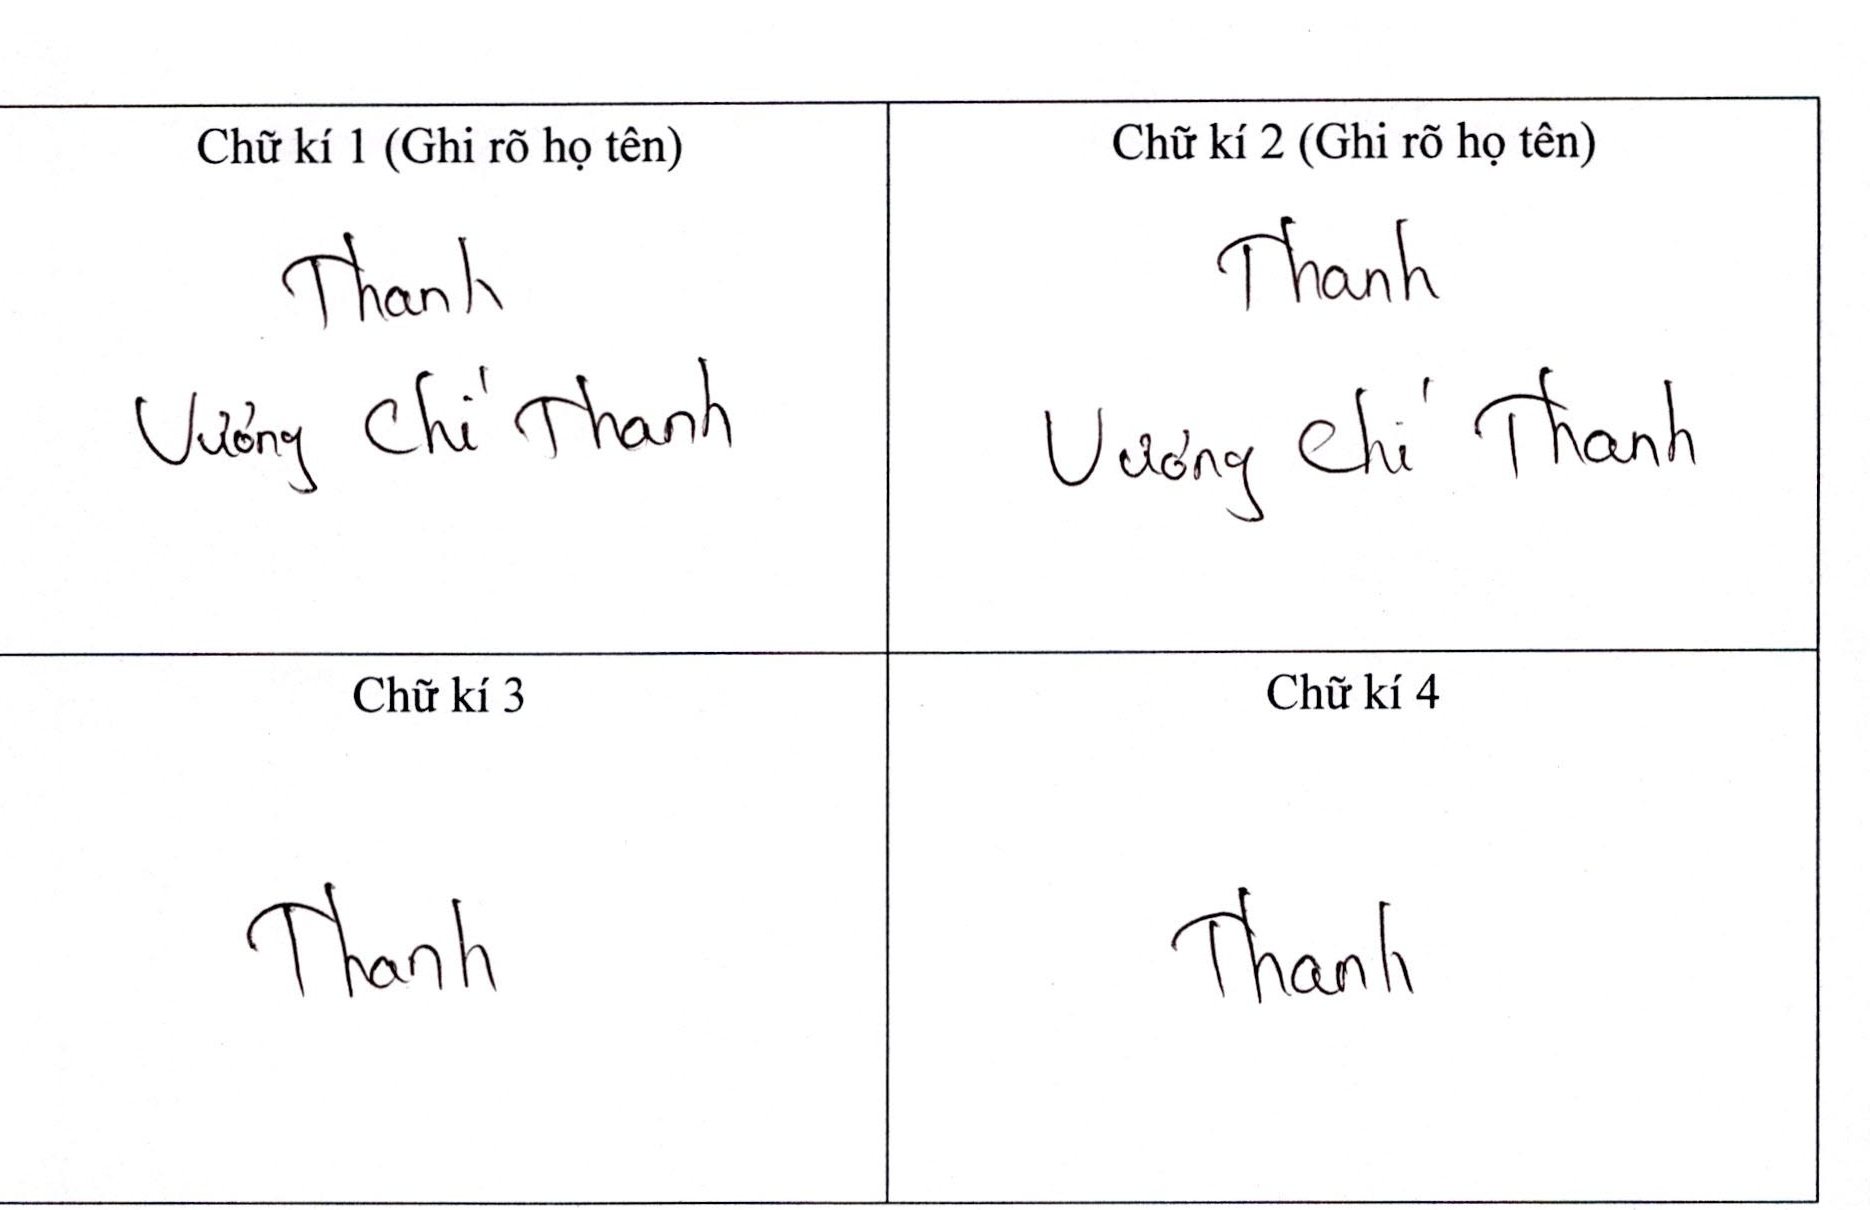 Chữ kí 1 (Ghi rõ họ tên)
Thanh
Vương Chí Thanh
Chữ kí 2 (Ghi rõ họ tên)
Thanh
Vương Chí Thanh
Chữ kí 3
Thanh
Chữ kí 4
Thanh